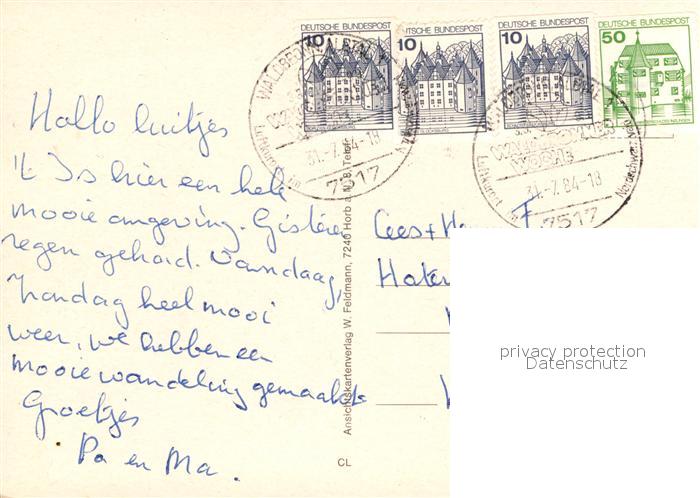 DEUTSCHE BUNDESPOST
10
10
DEUTSCHE BUNDESPOST
10
DEUTSCHE BUNDESPOST
50
WALDBRONN
Luftkurort im
31.-7.84-18
7517
Luftkurort
31.-7.84-18
7517
Hallo luitjes
't Is hier een hele
mooie omgeving. Gisteren
regen gehad. Vandaag,
zondag heel mooi
weer, we hebben een
mooie wandeling gemaakt
Groetjes
Pa en Ma.
Cees +
Ansichtskartenverlag W. Feldmann, 7240 Horb a. N. 8, Telef.
CL
privacy protection
Datenschutz